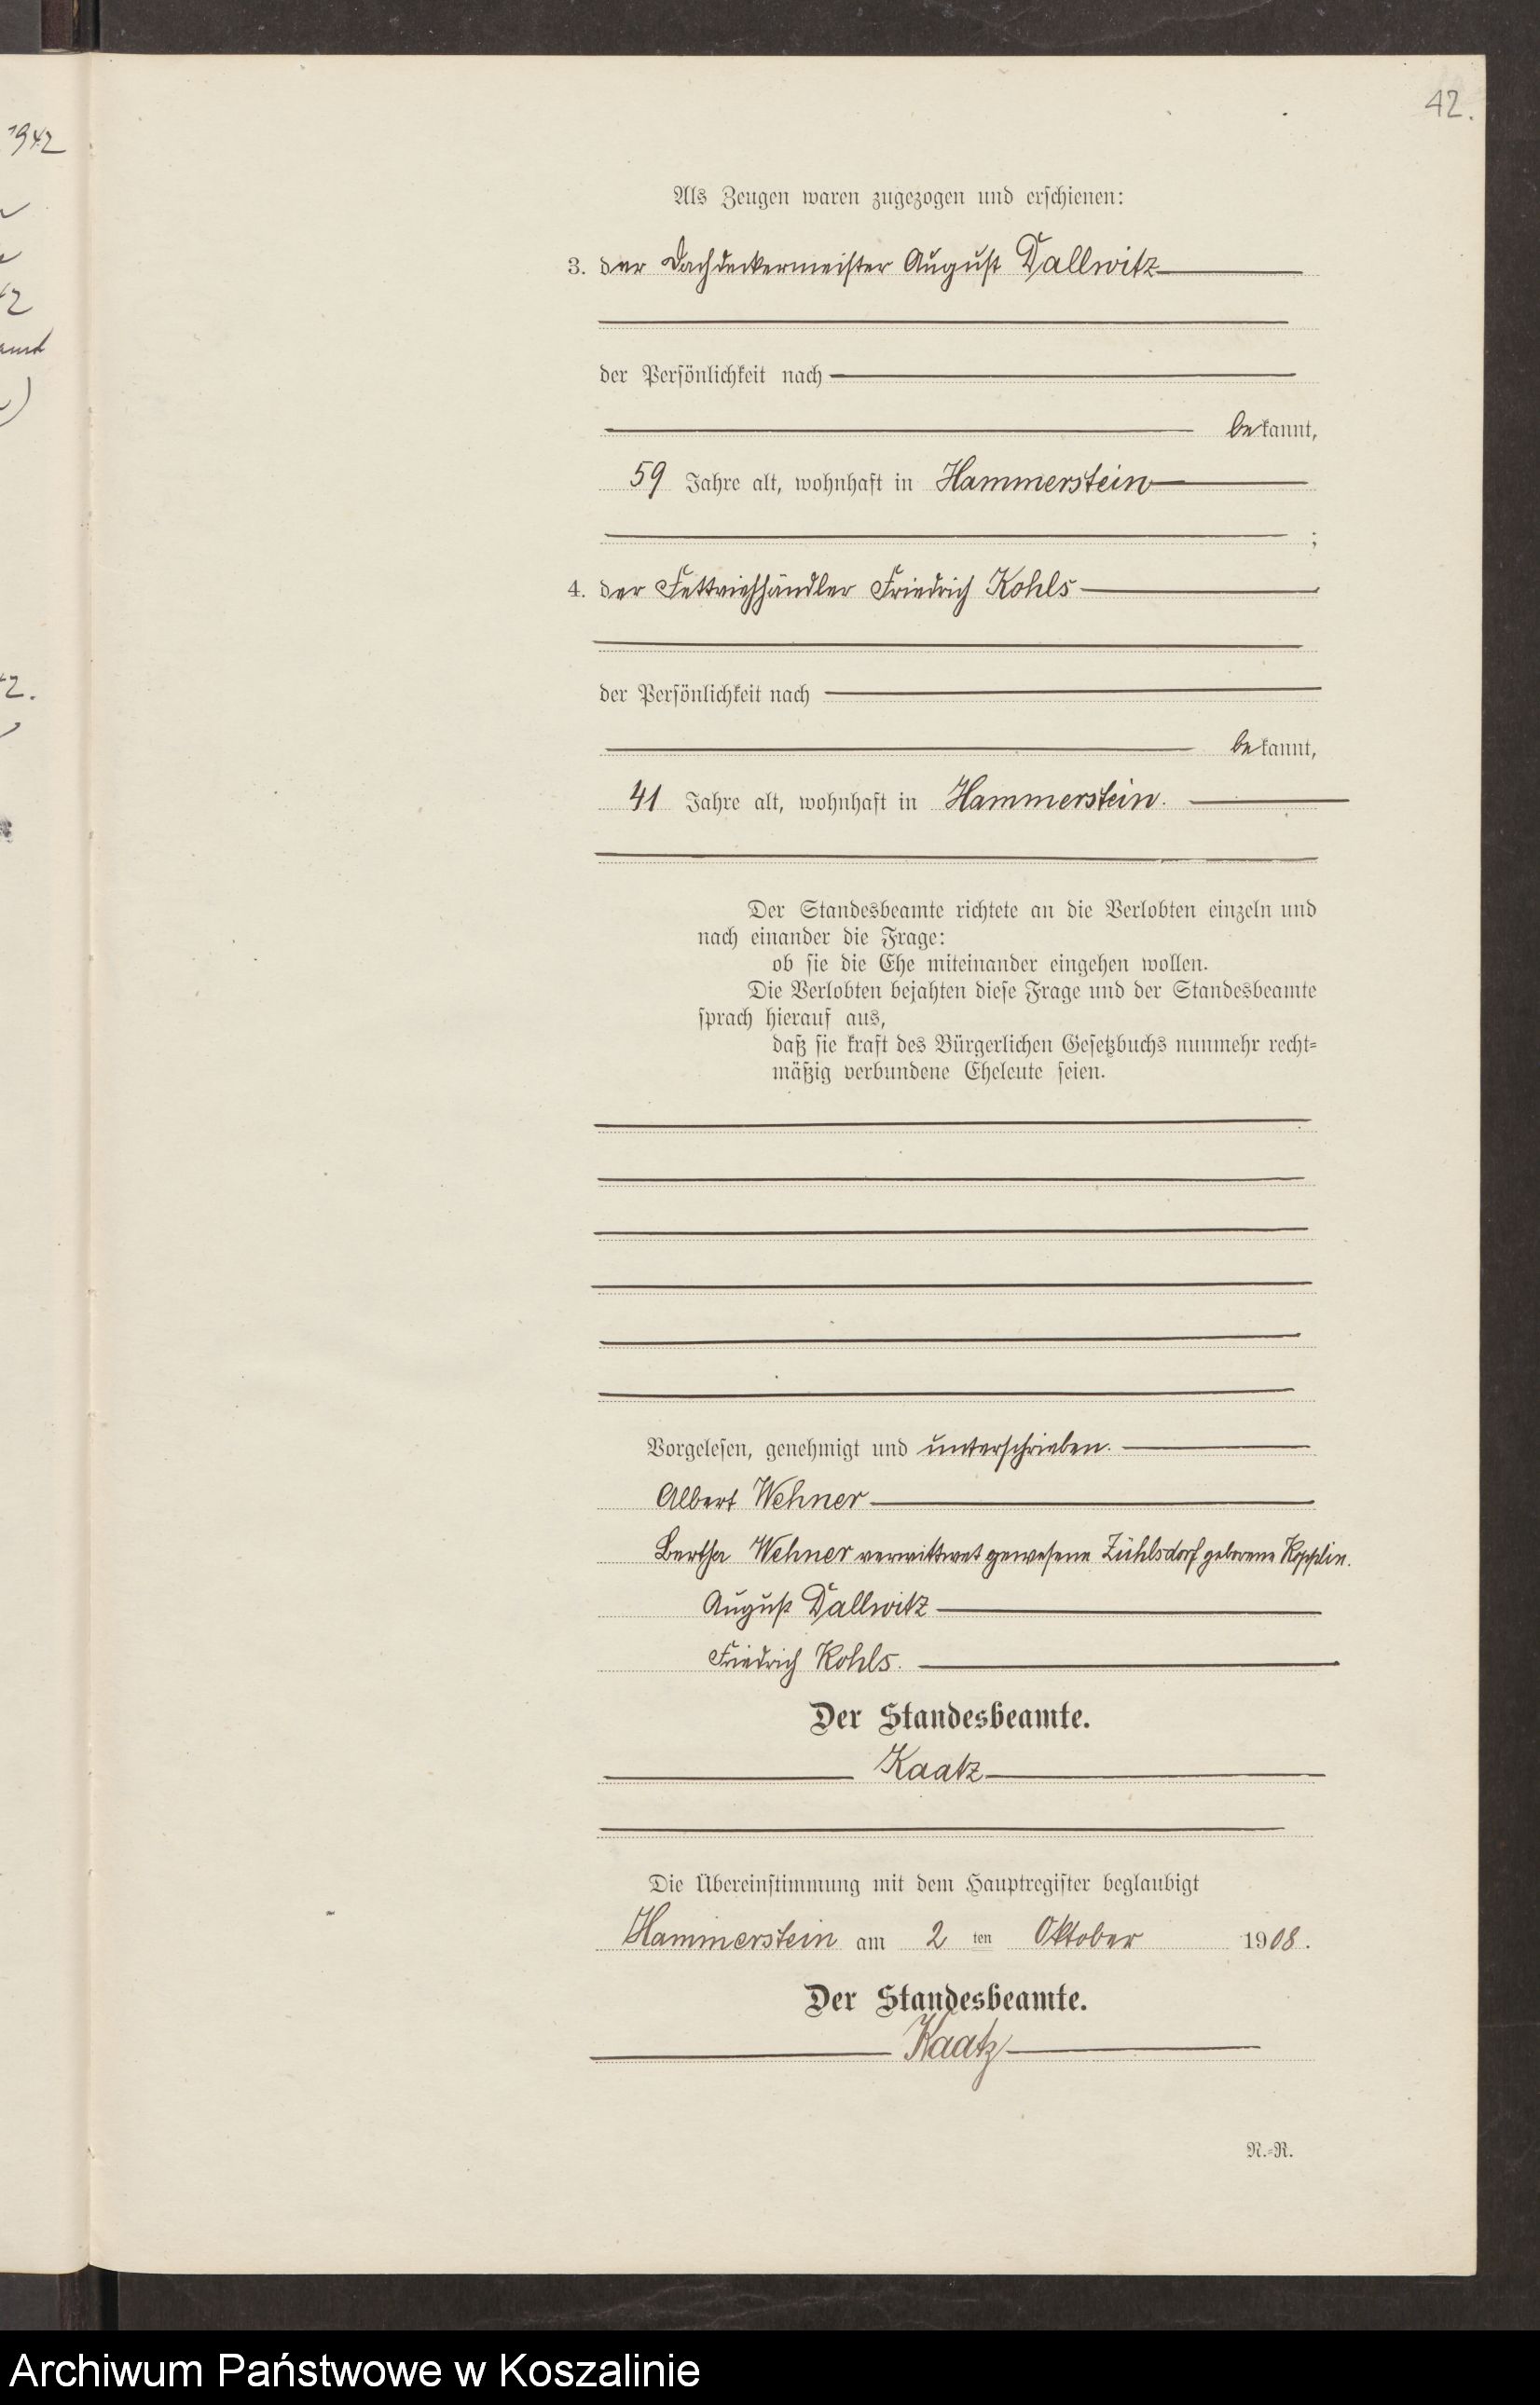 42.
1942
Als Zeugen waren zugezogen und erschienen:
3. der Dachdeckermeister August Dallwitz
der Persönlichkeit nach
bekannt,
59 Jahre alt, wohnhaft in Hammerstein
;
4. der Fettviehhändler Friedrich Kohls
der Persönlichkeit nach
bekannt,
41 Jahre alt, wohnhaft in Hammerstein.
Der Standesbeamte richtete an die Verlobten einzeln und
nach einander die Frage:
ob sie die Ehe miteinander eingehen wollen.
Die Verlobten bejahten diese Frage und der Standesbeamte
sprach hierauf aus,
daß sie kraft des Bürgerlichen Gesetzbuchs nunmehr recht=
mäßig verbundene Eheleute seien.
Vorgelesen, genehmigt und unterschrieben.
Albert Wehner
Bertha Wehner verwittwet gewesene Zühlsdorf geborene Kopplin.
August Dallwitz
Friedrich Kohls.
Der Standesbeamte.
Kaatz
Die Übereinstimmung mit dem Hauptregister beglaubigt
Hammerstein am 2 ten Oktober 1908.
Der Standesbeamte.
Kaatz
N.=R.
Archiwum Państwowe w Koszalinie